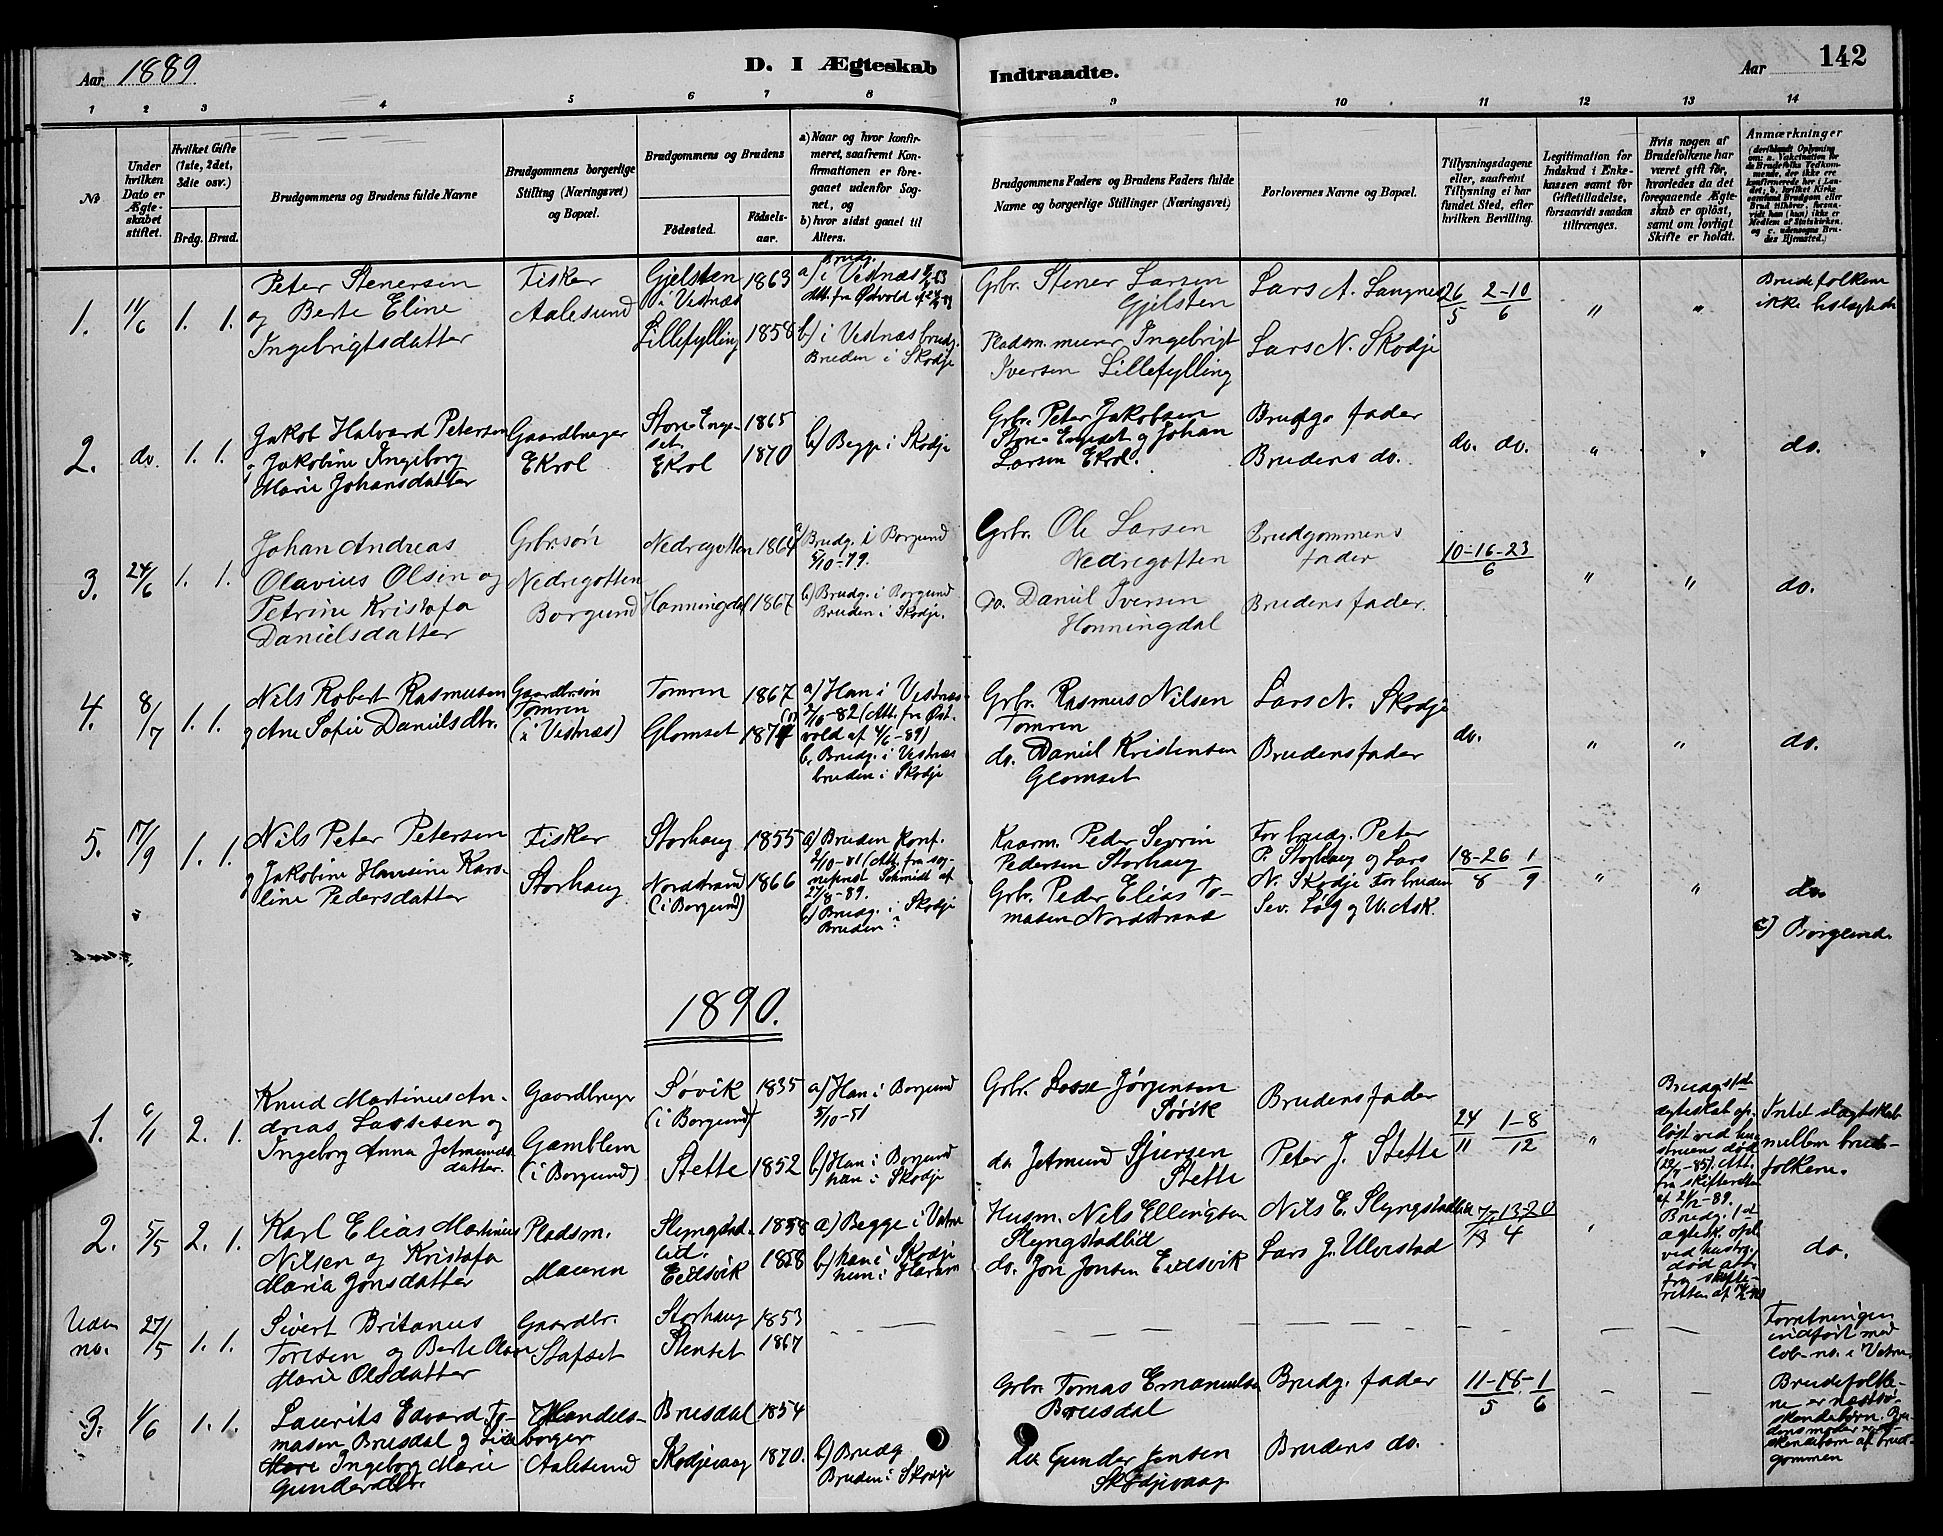 Aar 1889.
D. I Ægteskab
Indtraadte.
Aar
142
1 2 3 4 5 6 7 8 9 10 11 12 13 14
No
Under hvilken Dato er Ægteskabet stiftet.
Hvilket Gifte (1ste, 2det, 3die osv.)
Brdg. Brud.
Brudgommens og Brudens fulde Navne
Brudgommens borgerlige Stilling (Næringsvei) og Bopæl.
Brudgommens og Brudens
Fødested.
Fødselsaar.
a) Naar og hvor konfirmeret, saafremt Konfirmationen er foregaaet udenfor Sognet, og
b) hvor sidst gaaet til Alters.
Brudgommens Faders og Brudens Faders fulde Navne og borgerlige Stillinger (Næringsvei)
Forlovernes Navne og Bopæl.
Tillysningsdagene eller, saafremt Tillysning ei har fundet Sted, efter hvilken Bevilling.
Legitimation for Indskud i Enkekassen samt for Giftetilladelse, forsaavidt saadan tiltrænges.
Hvis nogen af Brudefolkene har været gift før, hvorledes da det foregaaende Ægteskab er opløst, samt om lovligt Skifte er holdt.
Anmærkninger
1. 11/6 1. 1.
Peter Stenersen
og Berte Eline
Ingebrigtsdatter
Fisker
Aalesund
Gjelsten
i Vestnæs
Lillefylling
1863
1858
a) Brudg.
i Vestnæs
Att. fra Østvold
b) i Vestnæs brudg.
Bruden i Skodje
Grbr. Stener Larsen
Gjelsten
Pladsm. murer Ingebrigt
Iversen Lillefylling
Lars A. Langnes
Lars N. Skodje
26/5 2-10/6
"
"
Brudefolkene
ikke beslægtede
2. do. 1. 1.
Jakob Halvard Petersen
og Jakobine Ingeborg
Marie Johansdatter
Gaardbruger
Ekrol
Store-Enge-
set
Ekrol
1865
1870
b) Begge i Skodje
Grbr. Peter Jakobsen
Store-Engeset og Johan
Larsen Ekrol.
Brudgs fader
Brudens do.
do. do.
"
"
do.
3. 24/6 1. 1.
Johan Andreas
Olavius Olsen og
Petrine Kristofa
Danielsdatter
Grbr.søn
Nedregotten
Borgund
Nedregotten
Honningdal
1864
1867
a) Brudg. i Borgund
5/10-79.
b) Brudg. i Borgund
Bruden i Skodje.
Grbr. Ole Larsen
Nedregotten
do. Daniel Iversen
Honningdal
Brudgommens
fader
Brudens fader.
10-16-23/6
"
"
do.
4. 8/7 1. 1.
Nils Robert Rasmusen
og Ane Sofie Danielsdtr.
Gaardbr.søn
Tomren
(i Vestnæs)
Tomren
Glomset
1867
1871
a) Han i Vestnæs
1/10-82 (Att. fra Øst-
vold af 4/6-89)
b. Brudg. i Vestnæs
bruden i Skodje
Grbr. Rasmus Nilsen
Tomren
do. Daniel Kristensen
Glomset
Lars N. Skodje
Brudens fader
do.
"
"
do.
5. 17/9 1. 1.
Nils Peter Petersen
og Jakobine Hansine Karo-
line Pedersdatter
Fisker
Storhaug
Storhaug
Nordstrand
(i Borgund)
1855
1866
a) Bruden konf.
2/10-81 (Att. fra sog-
neprest Schmidt af
27/8-89.
b) Brudg. i Skodje
Bruden ?
Kaarm. Peder Sevrin
Pedersen Storhaug
Grbr. Peder Elias To-
masen Nordstrand
For brudg. Peter
P. Storhaug og Lars
N. Skodje For bruden
Sev. Løg og W. Ask.
18-26/8 1/9
"
"
do.
c) Borgund.
1890.
1. 6/1 2. 1.
Knud Martinus An-
dreas Lassesen og
Ingeborg Anna Jetmunds-
datter.
Gaardbruger
Gamblem
(i Borgund)
Søvik
(i Borgund)
Stette
1835
1852
a) Han i Borgund
5/10-51
b) Han i Borgund
hun i Skodje
Grbr. Lasse Jørgensen
Søvik
do Jetmund Sjursen
Stette
Brudens fader
Peter J. Stette
24/11 1-8/12
"
Brudgs 1ste
ægteskab op-
løst ved hu-
struens død
Att.
fra skifteretten
af 21/12-89.
Intet slægtskab
mellem brude-
folkene.
2. 5/5 2. 1.
Karl Elias Martinus
Nilsen og Kristofa
Maria Jonsdatter
Pladsm.
Mauren
Slyngstad-
lid.
Eidsvik
1858
1858
a) Begge i Vatne
b) han i Skodje
hun i Haram
Husm. Nils Ellingsen
Slyngstadlid
do. Jon Jonsen Eidsvik
Nils E. Slyngstadlid
Lars J. Ulvestad
7-13-20
4
"
Brudg. 1st
ægtesk. opl.
ved hustru.
død att.
fra skifte-
retten af
do.
Uden
no. 27/5 1. 1.
Sivert Britanus
Toresen og Berte Olave
Marie Olsdatter
Gaardbr.
Stafset
Storhaug
Stenset
1853
1867
Forretningen
indført med
løb-no. i Vatne
3. 1/6 1. 1.
Laurits Edvard To-
masen Brusdal og
Ingeborg Marie
Gundersdtr.
Handels-
borger
Aalesund
Brusdal
Skodjevaag
1854
1870.
b) Brudg
Bruden i Skodje
Grbr. Tomas Emanuelsen
Brusdal
do Gunder Jensen
Skodjevaag
Brudg. fader
Brudens do.
11-18/5 - 1/6
Brudefolke-
ne er næstsø-
skendebørn. Bru-
dens moder
skendebarn af brud-
gommen